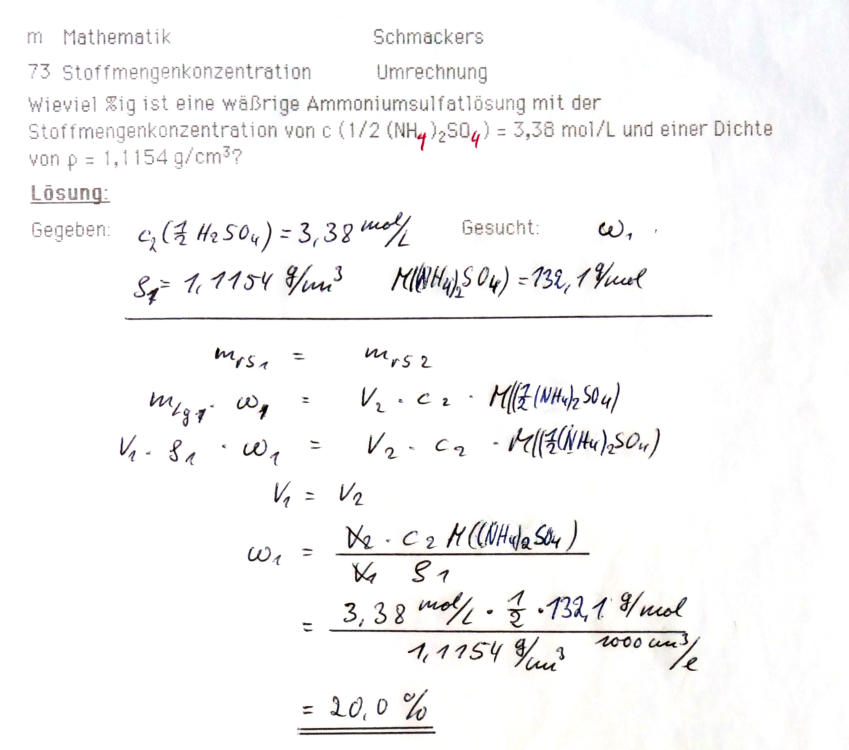 m Mathematik Schmackers
73 Stoffmengenkonzentration Umrechnung
Wieviel %ig ist eine wäßrige Ammoniumsulfatlösung mit der
Stoffmengenkonzentration von c (1/2 (NH₄)₂SO₄) = 3,38 mol/L und einer Dichte
von ρ = 1,1154 g/cm³?
Lösung:
Gegeben: c₂(½ H₂SO₄) = 3,38 mol/L Gesucht: ω₁
ρ₁ = 1,1154 g/cm³ M((NH₄)₂SO₄) = 132,1 g/mol
m_rS1 = m_rS2
m_Lg1 · ω₁ = V₂ · c₂ · M((½(NH₄)₂SO₄)
V₁ · ρ₁ · ω₁ = V₂ · c₂ · M((½(NH₄)₂SO₄)
V₁ = V₂
ω₁ = V₂ · c₂ M((NH₄)₂SO₄)
V₁ ρ₁
= 3,38 mol/L · ½ · 132,1 g/mol
1,1154 g/cm³ 1000 cm³/l
= 20,0 %